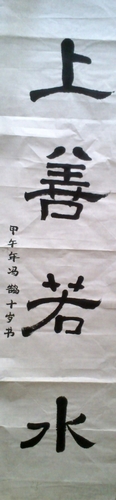 上善若水
甲午年冯懿十岁书